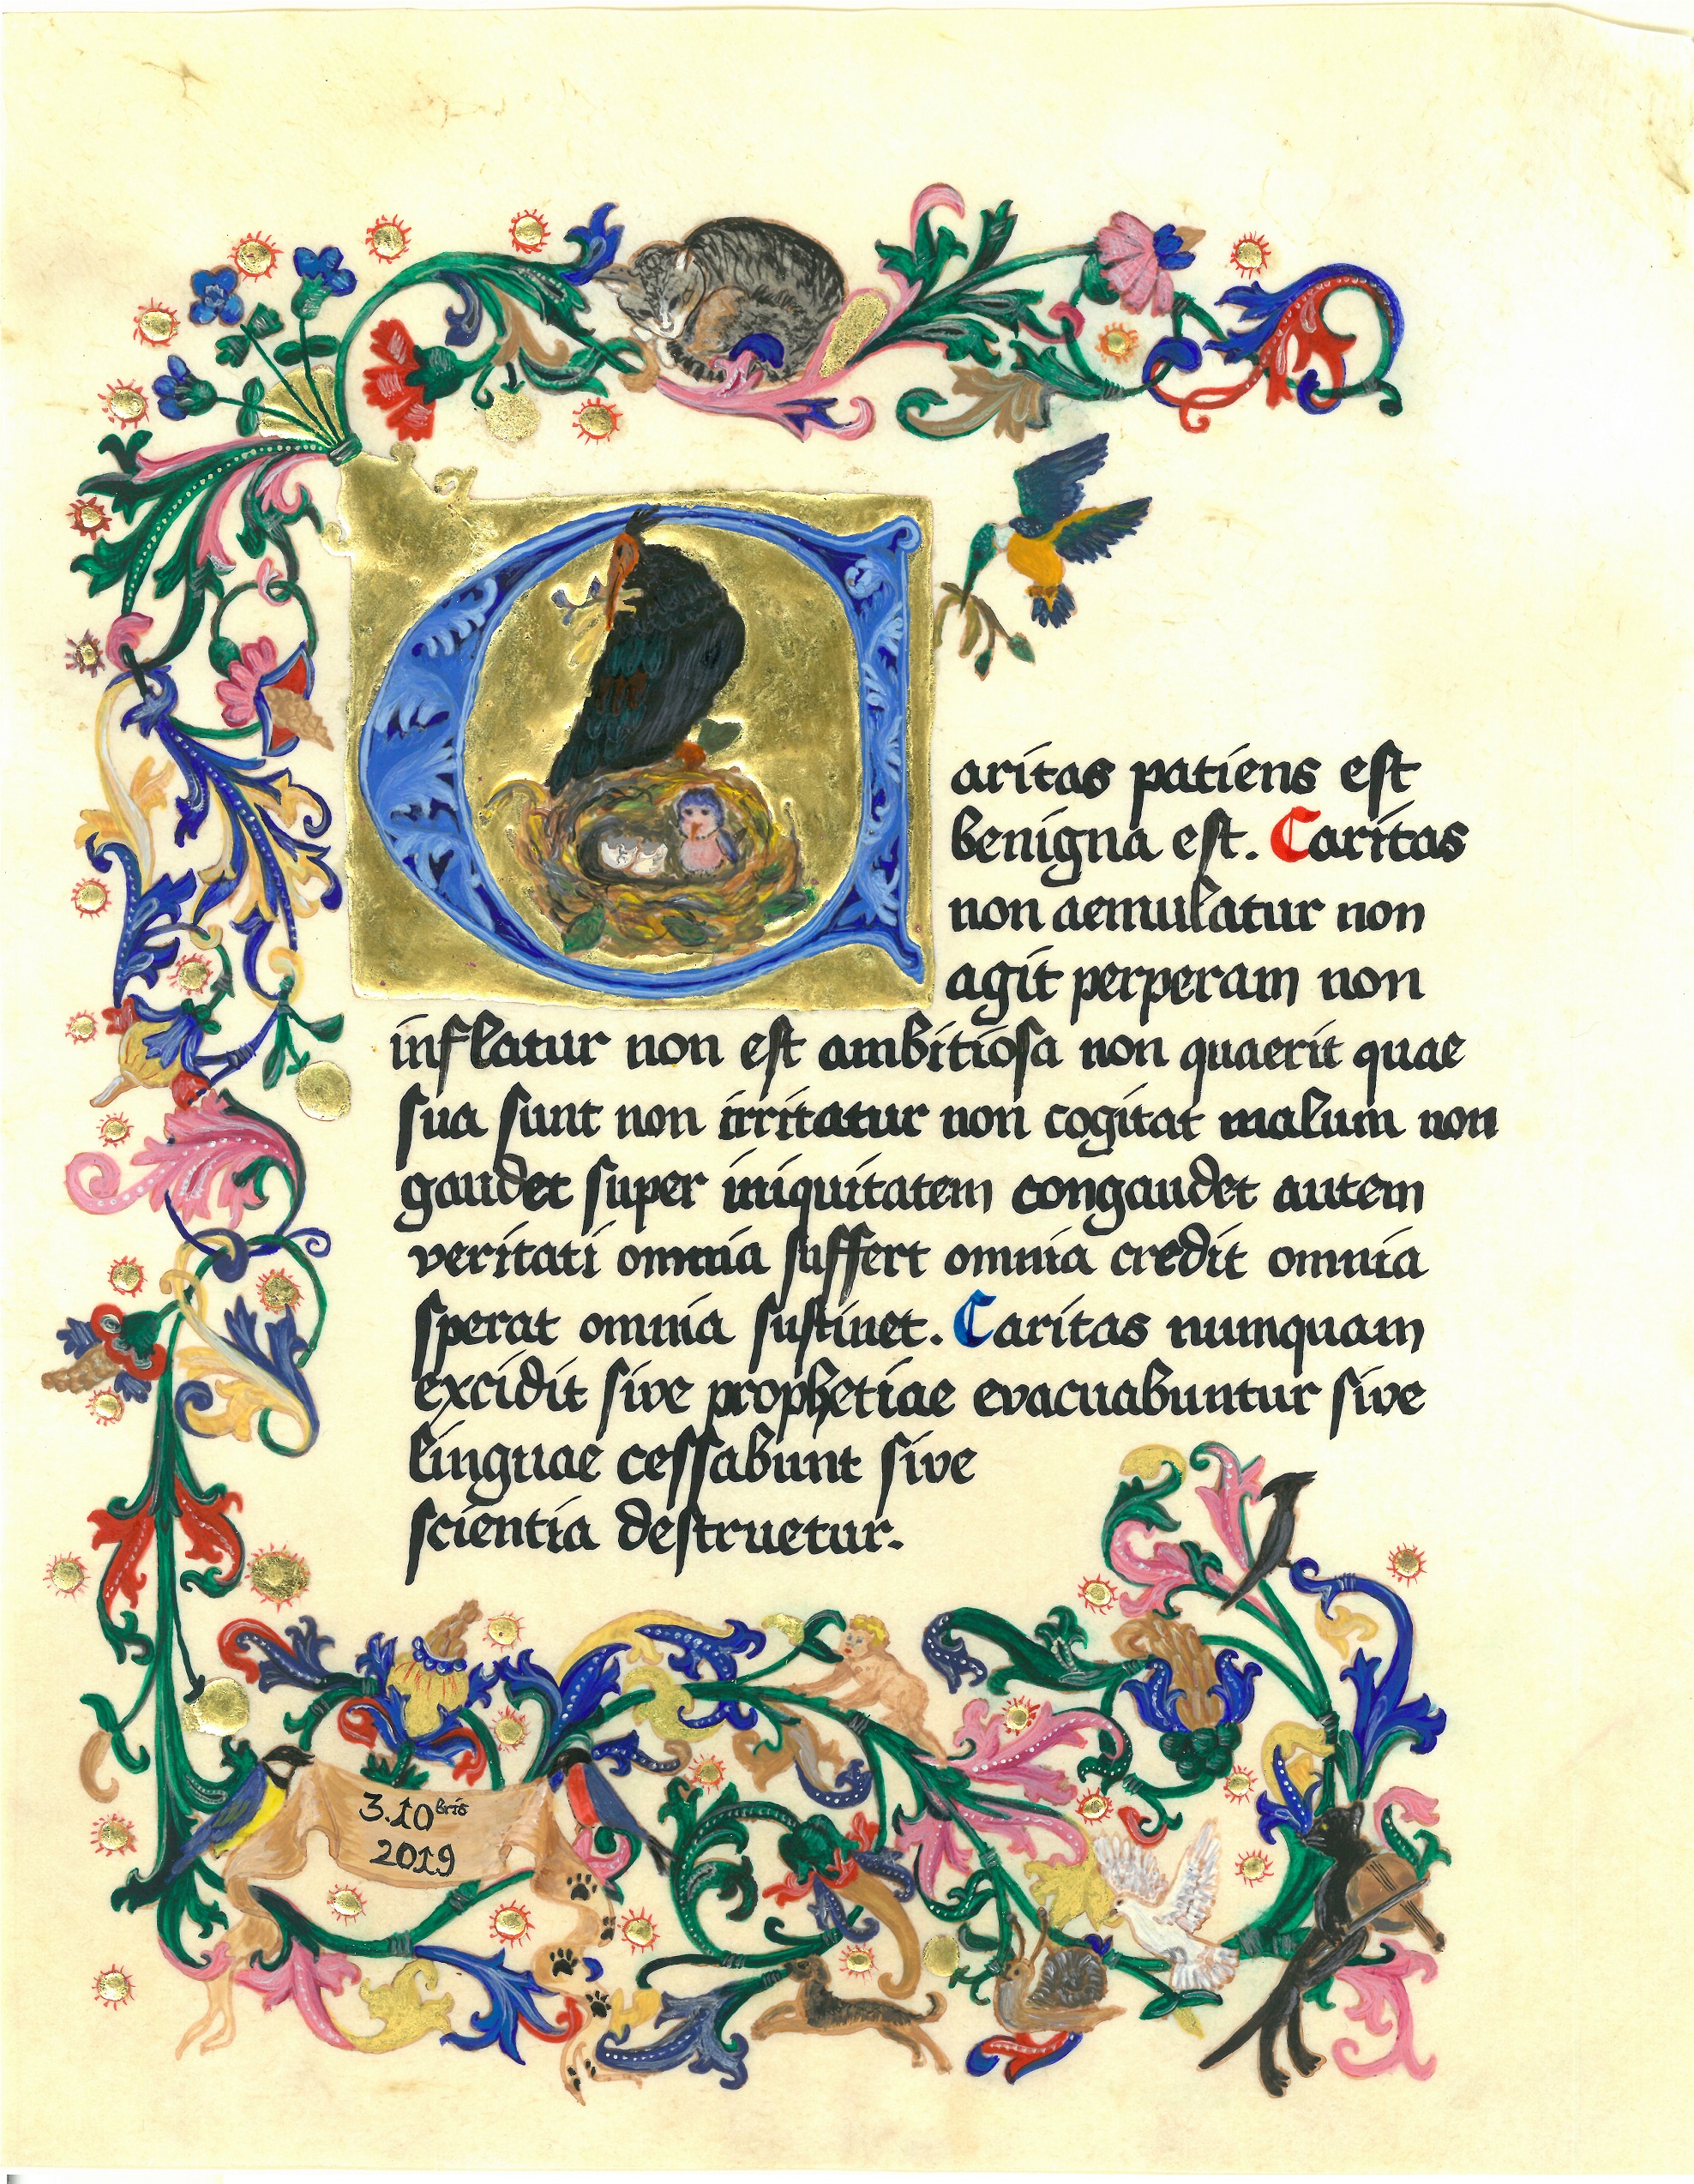 Caritas patiens est
benigna est. Caritas
non aemulatur non
agit perperam non
inflatur non est ambitiosa non quaerit quae
sua sunt non irritatur non cogitat malum non
gaudet super iniquitatem congaudet autem
veritati omnia suffert omnia credit omnia
sperat omnia sustinet. Caritas numquam
excidit sive prophetiae evacuabuntur sive
linguae cessabunt sive
scientia destruetur.
3.10bris
2019